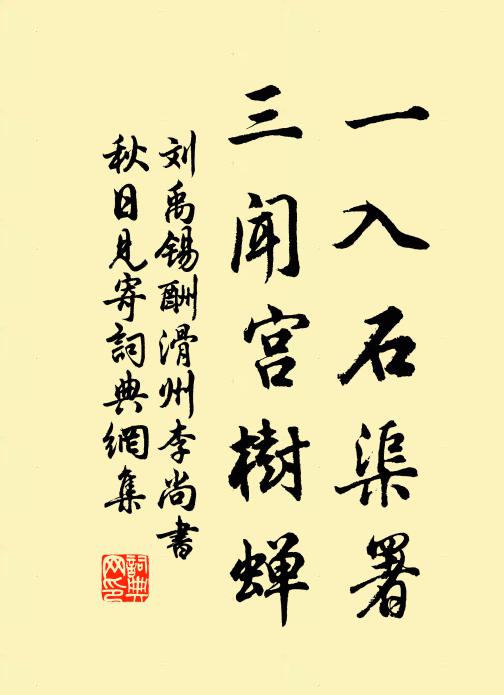 一入石渠署
三闻宫樹蝉
刘禹锡酬滑州李尚書
秋日見寄詞典網集
詞典网印